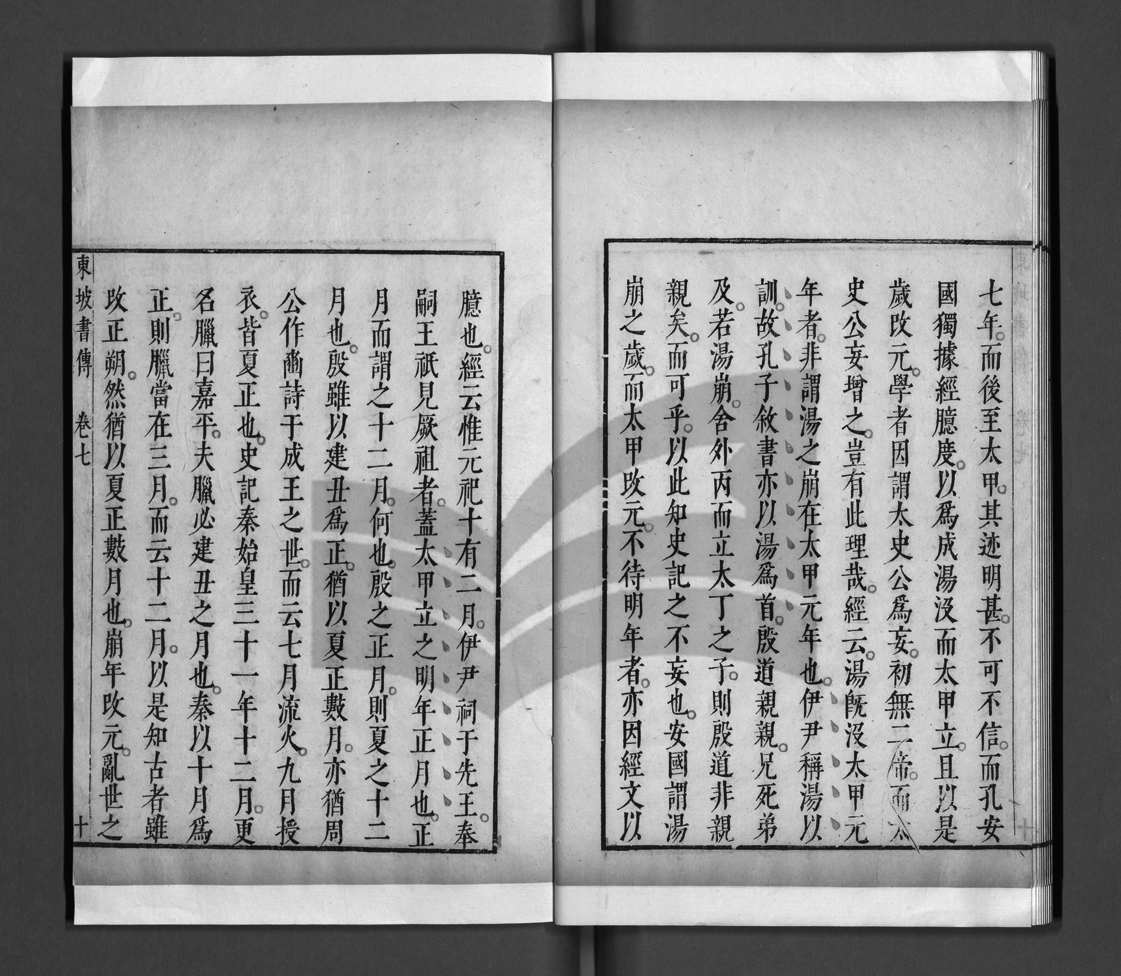 七年。而後至太甲。其迹明甚。不可不信。而孔安
國獨據經臆度。以爲成湯沒而太甲立。且以是
歲改元。學者因謂太史公爲妄。初無二帝。而太
史公妄增之。豈有此理哉。經云。湯旣沒太甲元
年者。非謂湯之崩在太甲元年也。伊尹稱湯以
訓。故孔子敘書亦以湯爲首。殷道親親。兄死弟
及。若湯崩。舍外丙而立太丁之子。則殷道非親
親矣。而可乎。以此知史記之不妄也。安國謂湯
崩之歲。而太甲改元。不待明年者。亦因經文以
臆也。經云惟元祀十有二月。伊尹祠于先王。奉
嗣王祇見厥祖者。蓋太甲立之明年正月也。正
月而謂之十二月。何也。殷之正月。則夏之十二
月也。殷雖以建丑爲正。猶以夏正數月。亦猶周
公作豳詩于成王之世。而云七月流火。九月授
衣。皆夏正也。史記秦始皇三十一年十二月。更
名臘曰嘉平。夫臘必建丑之月也。秦以十月爲
正。則臘當在三月。而云十二月。以是知古者雖
改正朔。然猶以夏正數月也。崩年改元。亂世之
東坡書傳 卷七 十